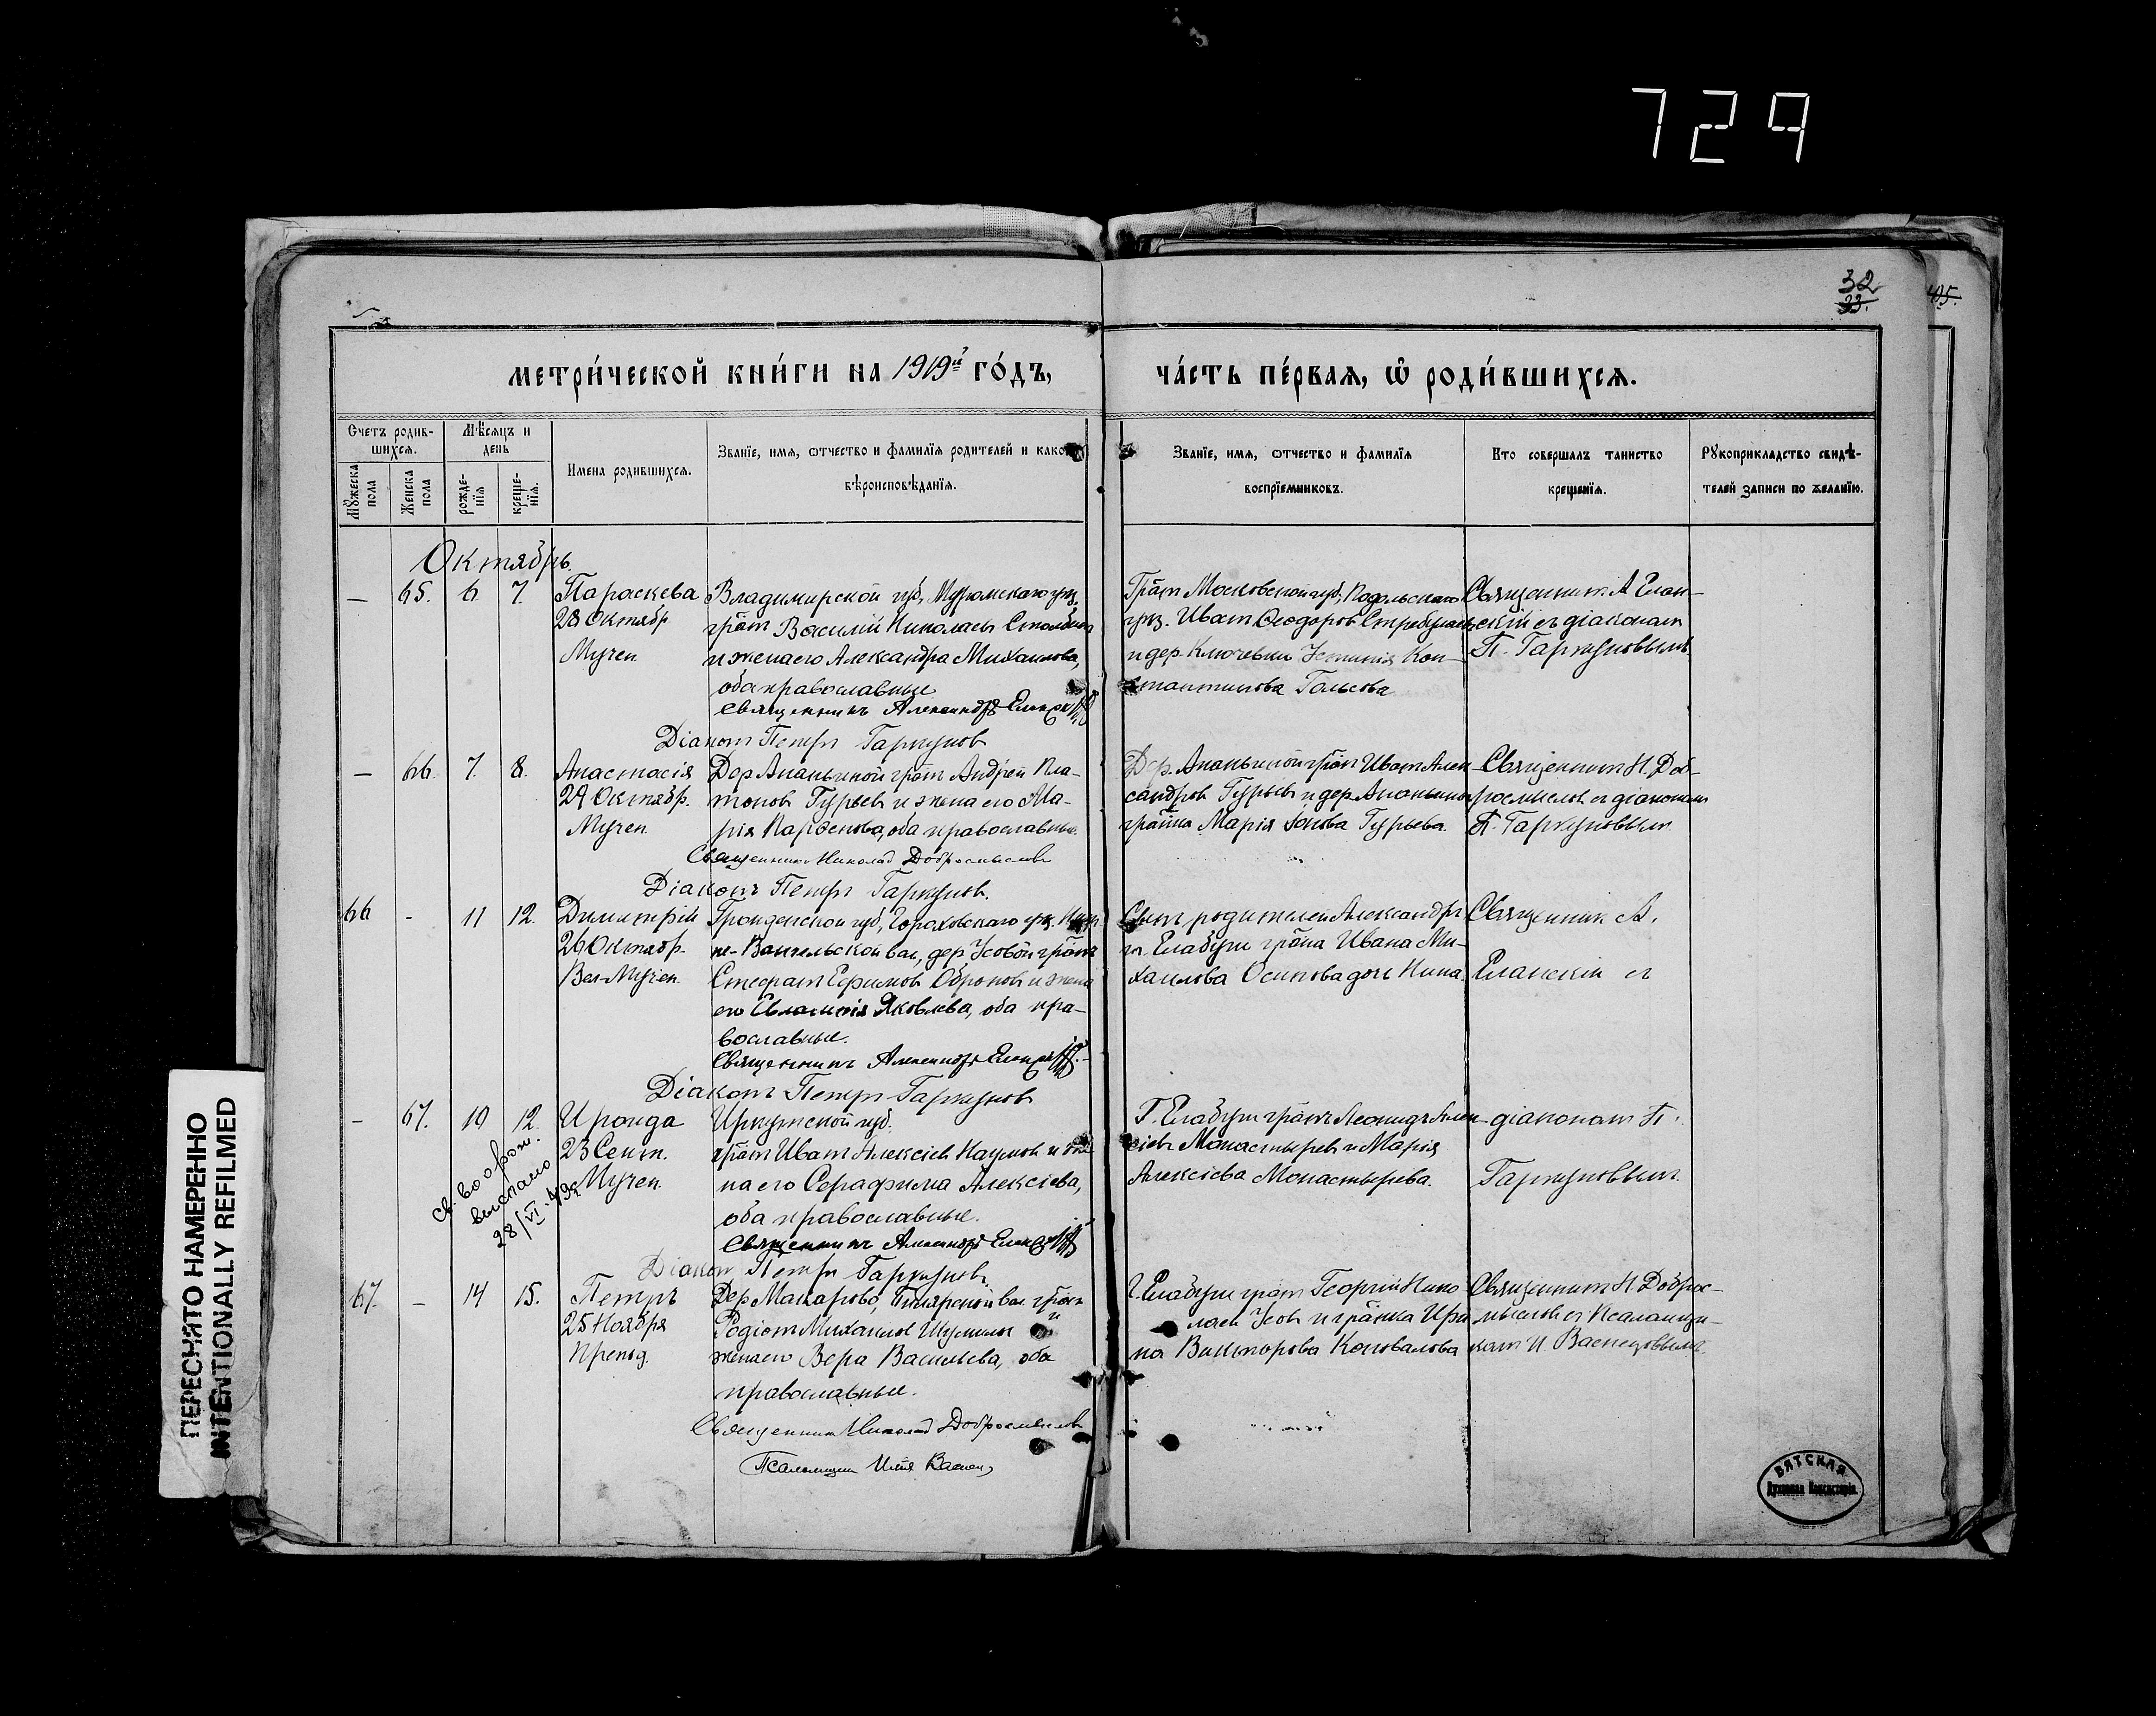 729
32
33.
45.
Метри́ческой кни́ги на 1919й го́дъ,
ча́сть пе́рвая, ѡ҆ роди́вшихсѧ.
Счетъ родив-
шихсѧ.
Мѣсѧцъ и
день
Мꙋжеска
пола
Женска
пола
рожде-
нїѧ
креще-
нїѧ.
Имена родившихсѧ.
Званїе, имѧ, ѿтчество и фамилїѧ родителей и какого
вѣроисповѣданїѧ.
Званїе, имѧ, ѿтчество и фамилїѧ
воспрїемниковъ.
Кто совершалъ таинство
крещенїѧ.
Рꙋкоприкладство свидѣ-
телей записи по желанїю.
Октябрь.
— 65. 6 7. Параскева
28 Октябр
Мучен.
Владимирской губ, Муромскаго уез,
гр-н Василій Николаевъ
и жена его Александра Михаилова,
оба православные
Священникъ Александръ
Діаконъ Петръ Гаркуновъ
Гр-н Московской губ, Подольскаго
уез. Иванъ Ѳеодоровъ
и дер. Ключевки Устинія Кон-
стантинова
Священник А. Елан-
скій съ діаконом
П. Гаркуновымъ
— 66. 7. 8. Анастасія
29 Октябр.
Мучен
Дер Ананьиной гр-н Андрей Пла-
тонов Гурьев и жена его Ма-
рія Парѳенова, оба православные.
Священникъ Николай Добросмысловъ
Діаконъ Петръ Гаркуновъ.
Дер. Ананьиной гр-н Иван Алек-
сандров Гурьевъ и дер. Ананьиной
гр-нка Марія Іонова Гурьева.
Священник Н. Доб-
росмыслов съ діаконом
П. Гаркуновым
66 - 11 12. Димитрій
26 Октябр.
Вел-Мучен.
Гродненской губ,
вол, дер Усовой гр-нъ
Стефан Ефимов и жена
его Яковлева, оба пра-
вославные.
Священникъ Александръ
Діаконъ Петръ Гаркуновъ
Сынъ родителей Александръ
г. Елабуги гр-на Ивана Ми-
хаилова Осипова дочь Нина.
Священник А.
Еланскій съ
- 67. 10 12. Ираида
23 Сент.
Мучен.
св. во о рож.
выслано
28/VI
Иркутской губ.
гр-н Иван Алексіев Наумов и же-
на его Серафима Алексіева,
оба православные.
Священникъ Александръ
Діакон Петръ Гаркуновъ
Г. Елабуги гр-нъ Леонидъ Алек-
сіевъ Монастырев и Марія
Алексіева Монастырева.
діаконом П.
Гаркуновымъ.
67. - 14 15. Петръ
25 Ноября
Препод.
Дер Макарово, вол. гр-н
Родіон Михаилов и
жена его Вера Васильева, оба
православные.
Священник Николай Добросмысловъ
Псаломщик Илія
г. Елабуги гр-н Георгій Нико
лаев Усовъ и гр-нка Ири
на Викторова Коновалова
Священник Н. Доброс-
мыслов съ Псаломщи-
ком И. Васнецовым.
ВЯТСКАЯ
Духовная Консисторія.
ПЕРЕСНЯТО НАМЕРЕННО
INTENTIONALLY REFILMED